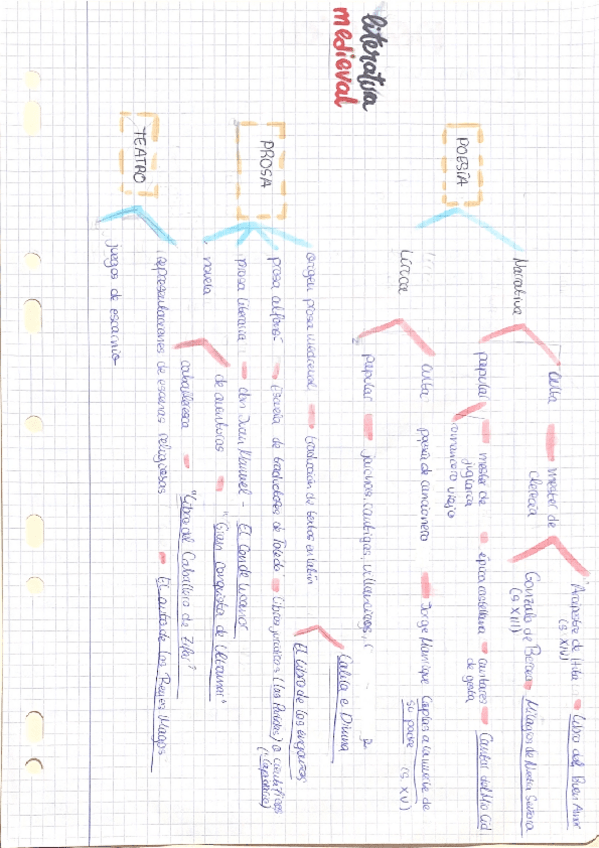 literatura
medieval
POESÍA
Narrativa
Culta
mester de
clerecía
Arcipreste de Hita
(s XIV)
Libro del Buen Amor
Gonzalo de Berceo
(s XIII)
Milagros de Nuestra Señora
popular
mester de
juglaría
épica castellana
cantares
de gesta
Cantar del Mio Cid
romancero viejo
Lírica
Culta
poesía de cancionero
Jorge Manrique
Coplas a la muerte de
su padre
(s XV)
popular
jarchas, cantigas, villancicos,
PROSA
origen prosa medieval
traducción de textos en latín
Calila e Dimna
El libro de los engaños
prosa alfonsí
Escuela de traductores de Toledo
Libros jurídicos (las Partidas) o científicos
prosa literaria
don Juan Manuel - El conde Lucanor
novela
de aventuras
"Gran conquista de Ultramar"
caballeresca
"Libro del Caballero de Zifar"
TEATRO
representaciones de escenas religiosas
El auto de los Reyes Magos
juegos de escarnio